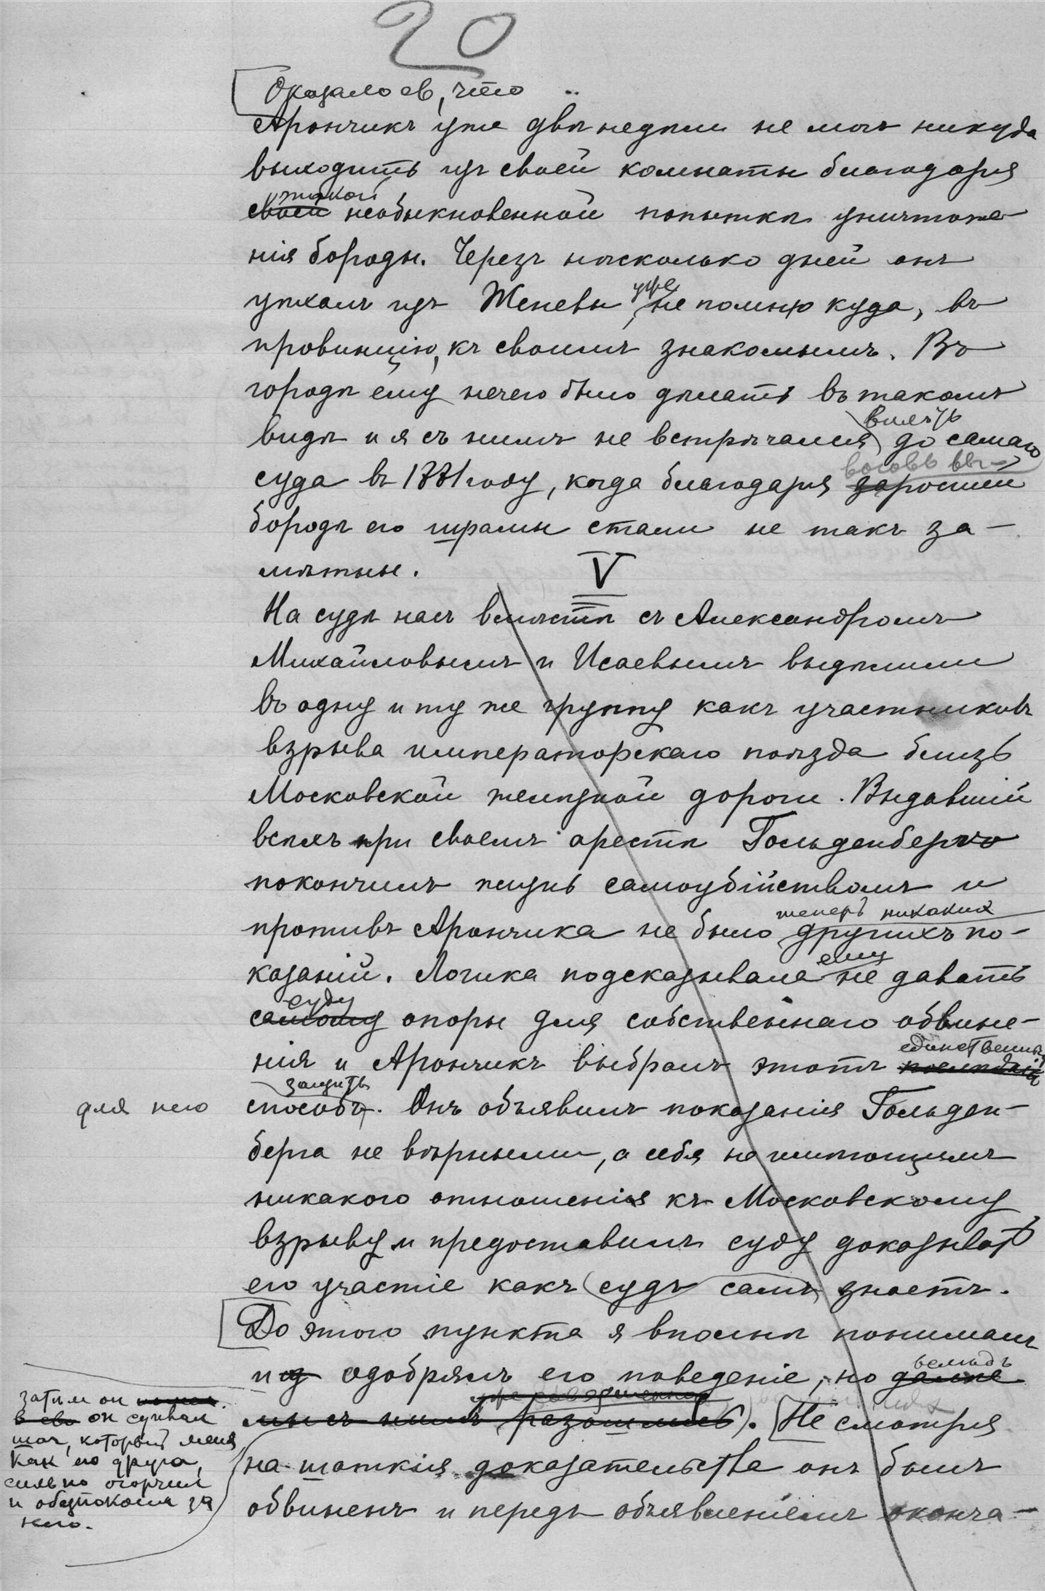 20
Оказалось, что
Арончикъ уже двѣ недѣли не могъ никуда
выходить изъ своей комнаты благодаря
такой
своей необыкновенной попыткѣ уничтоже-
нія бороды. Черезъ нѣсколько дней онъ
уже
уѣхалъ изъ Женевы, не помню куда, въ
провинцію, къ своимъ знакомымъ. Въ
городѣ ему нечего было дѣлать въ такомъ
вплоть
видѣ и я съ нимъ не встрѣчался до самаго
суда въ 1881 году, когда благодаря заросшей
бородѣ его шрамы стали не такъ за-
мѣтны.
V
На судѣ насъ вмѣстѣ съ Александромъ
Михайловымъ и Исаевымъ выдѣлили
въ одну и ту же группу какъ участниковъ
взрыва императорскаго поѣзда близь
Московской желѣзной дороги. Выдавшій
всѣхъ при своемъ арестѣ Гольденбергъ
покончилъ жизнь самоубійствомъ и
теперь никакихъ
противъ Арончика не было другихъ по-
казаній. Логика подсказывала не давать
ему
суду
самому опоры для собственнаго обвине-
нія и Арончикъ выбралъ этотъ послѣдній
единственный
защиты
для него
способъ. Онъ объявилъ показанія Гольден-
берга не вѣрными, а себя не имѣющимъ
никакого отношенія къ Московскому
взрыву и предоставилъ суду доказывать
его участіе какъ судъ самъ знаетъ.
До этого пункта я вполнѣ понималъ
и одобрялъ его поведеніе, но далѣе
вслѣдъ
мы съ нимъ разошлись. Не смотря
затѣм он
он сдѣлал
шаг, который меня
как его друга,
сильно огорчил
и обезпокоил за
него.
на шаткія доказательства онъ былъ
обвиненъ и передъ объявленіемъ оконча-